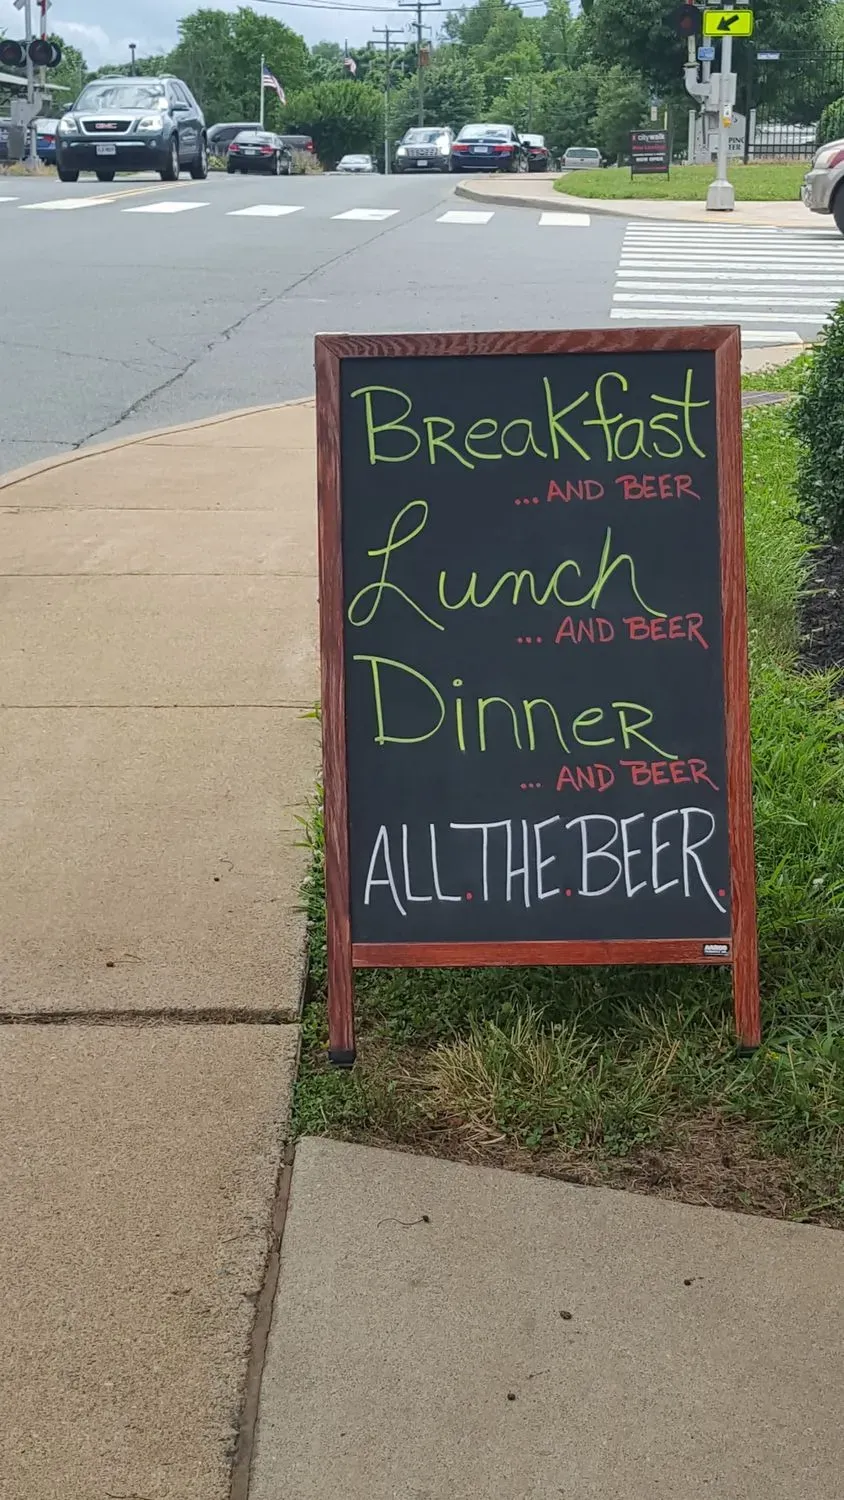 citywalk
Breakfast
... AND BEER
Lunch
... AND BEER
Dinner
... AND BEER
ALL.THE.BEER.